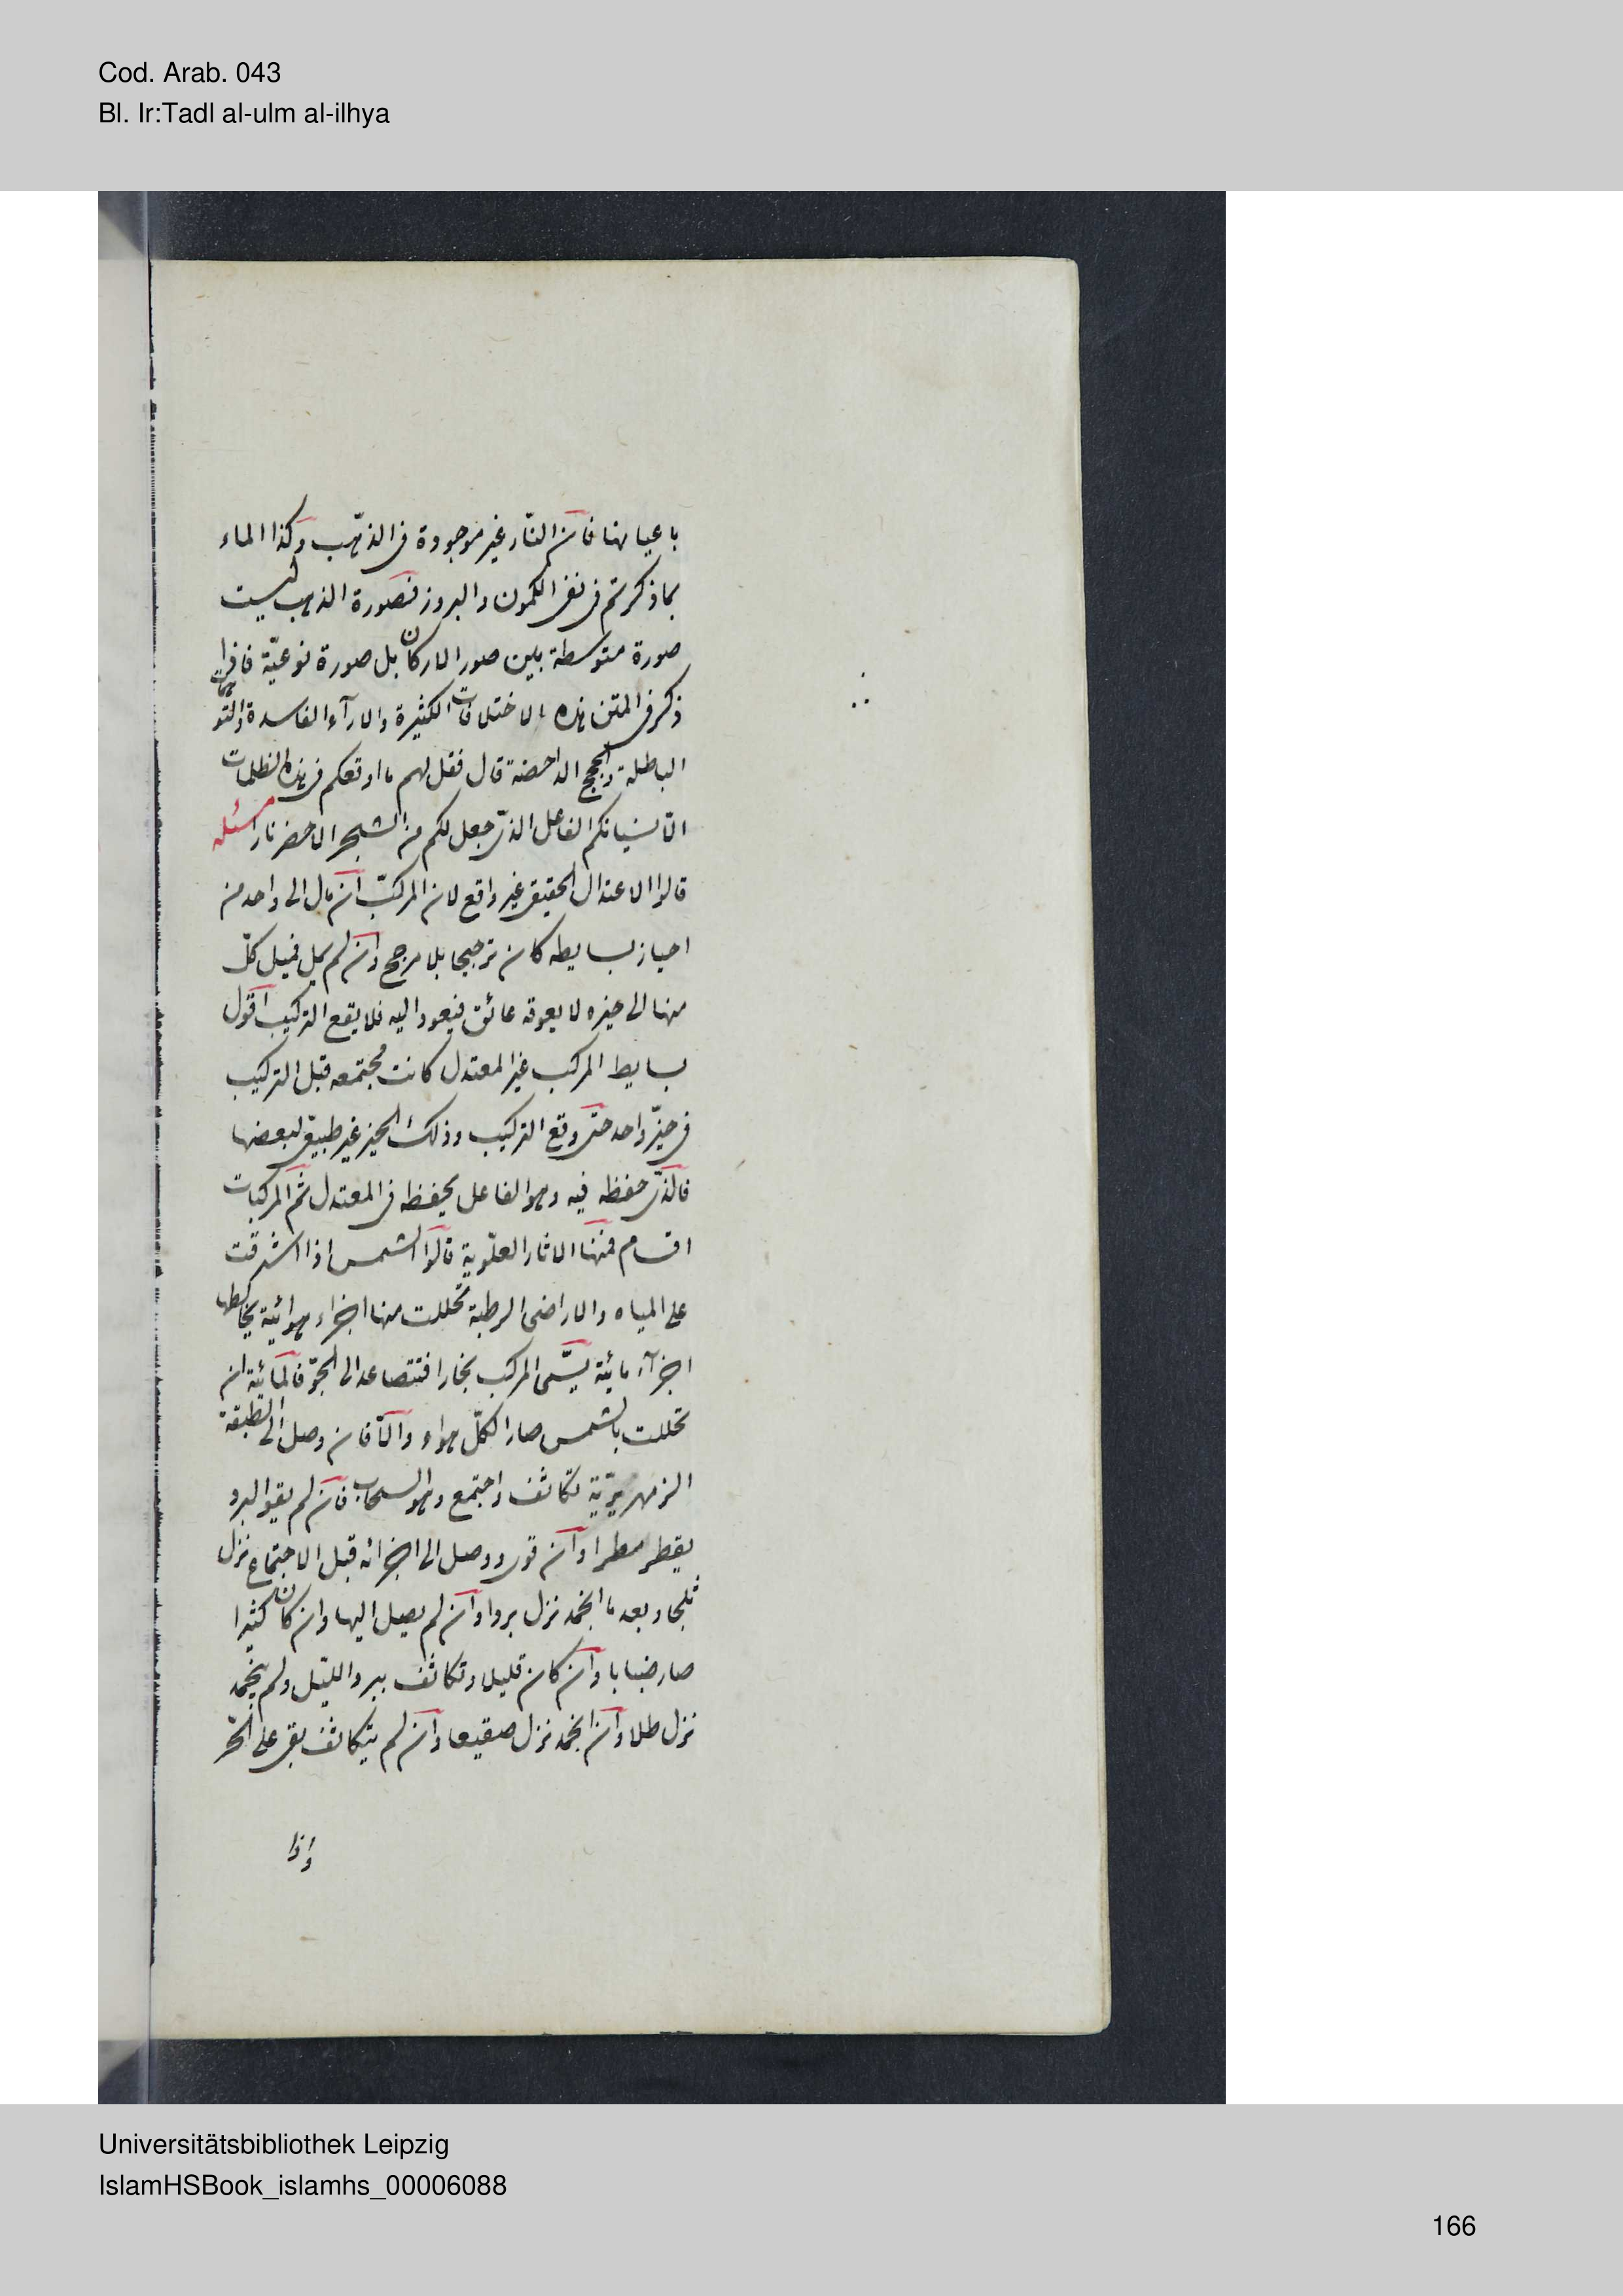 Cod. Arab. 043
Bl. Ir:Tadl al-ulm al-ilhya
باعيانها فان النّار غير موجودة فى الذّهب وكذا الماء
بما ذكرتم فى نفى الكمون والبروز فصورة الذهب ليست
صورة متوسطة بين صور الاركان بل صورة نوعيّة
ذكر فى المتن هذه الاختلافات الكثيرة والارآء الفاسدة
الباطلة والحجج الداحضة قال فقل لهم ما اوقعكم فى هذه الظلمات
الّا نسيانكم الفاعل الذى جعل لكم من الشجر الاخضر نارا مسئله
قالوا الاعتدال الحقيقى غير واقع لان المركّب ان مال الى واحد من
احياز بسايطه كان ترجيحا بلا مرجح وان لم يمل فميل كلّ
منها الى حيزه لا يعوقه عائق فيعود اليه فلا يقع التركيب اقول
بسايط المركب غير المعتدل كانت مجتمعه قبل التركيب
فى حيّز واحد حتى وقع التركيب وذلك الحيز غير طبيعى لبعضها
فالذّى حفظه فيه وهو الفاعل يحفظه فى المعتدل ثم المركبات
اقسام فمنها الاثار العلّوية قالوا الشمس اذا اشرقت
على المياه والاراضى الرطبة تحللت منها اجزاء هوائية يخالطها
اجزآء مائية يسّمى المركب بخارا فتتصاعد الى الجوّ فالمائية ان
تحللت بالشمس صار الكلّ هواء والّا فان وصل الى الطبقة
الزمهريريّة تكاثف واجتمع وهو السحاب فان لم يقو البرد
يقطر مطرا وان قوى ووصل الى اجزائه قبل الاجتماع نزل
ثلجا وبعد ما انجمد نزل بردا وان لم يصل اليها وان كان كثيرا
صار ضبابا وان كان قليل وتكاثف ببرد الليّل ولم ينجمد
نزل طلا وان انجمد نزل صقيعا وان لم يتكاثف بقى على الحّر
واذا
Universitätsbibliothek Leipzig
IslamHSBook_islamhs_00006088
166